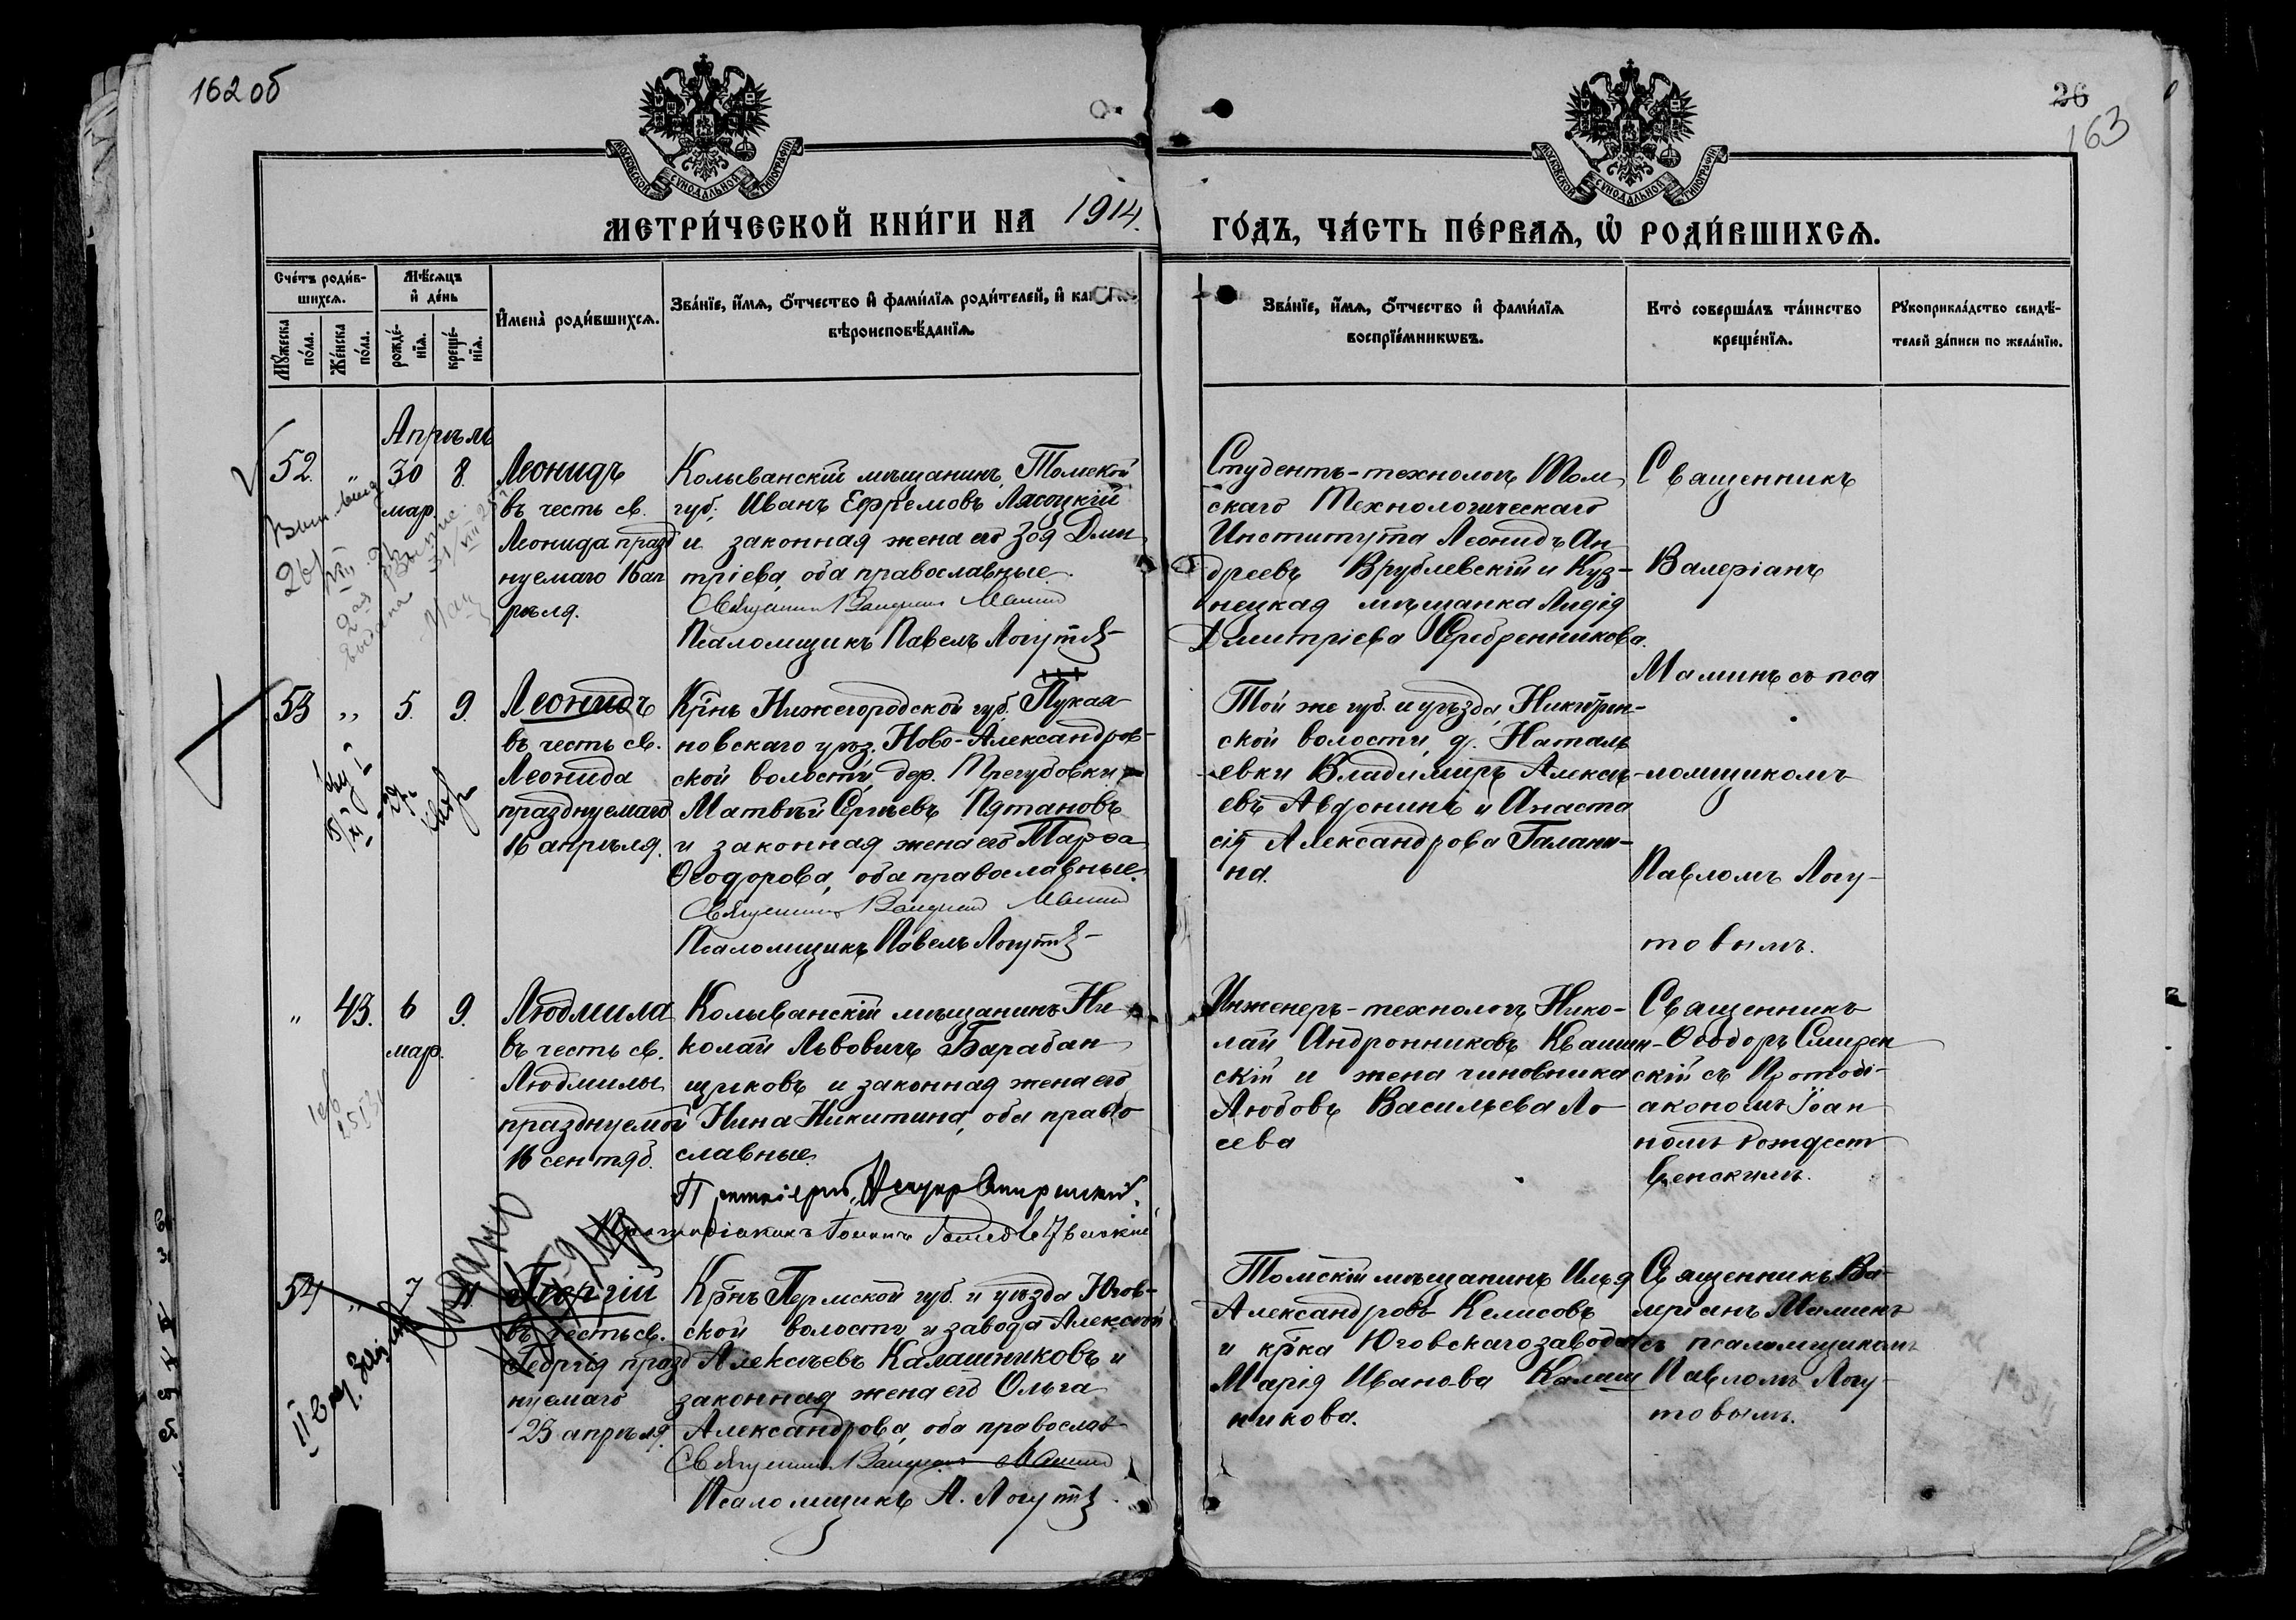 162 об
26
163
МОСКОВСКОЙ СѴНОДАЛЬНОЙ ТИПОГРАФІИ
МОСКОВСКОЙ СѴНОДАЛЬНОЙ ТИПОГРАФІИ
МЕТРИ́ЧЕСКОЙ КНИ́ГИ НА 1914. ГО́ДЪ, ЧА́СТЬ ПЕ́РВАЯ, Ѡ҆ РОДИ́ВШИХСЯ.
Сче́тъ роди́в-
шихся.
Мѣ́сяцъ
и҆ де́нь
Мꙋ́жеска
по́ла.
Же́нска
по́ла.
рожде́-
нїя.
креще́-
нїя.
И҆мена̀ роди́вшихся.
Зва́нїе, и҆́мя, ѻ҆́тчество и҆ фами́лїя роди́телей, и҆
вѣроисповѣ́данїя.
Зва́нїе, и҆́мя, ѻ҆́тчество и҆ фами́лїя
воспрїе́мникѡвъ.
Кто̀ соверша́лъ та́инство
креще́нїя.
Рꙋкоприкла́дство свидѣ́-
телей за́писи по жела́нїю.
Апрѣль
52. „ 30 8.
мар.
Леонидъ
въ честь св.
Леонида празд
нуемаго 16 ап
рѣля.
Колыванскій мѣщанинъ, Томской
губ. Иванъ Ефремовъ Лясоцкій
и законная жена его Зоя Дми
тріева, оба православные.
Священникъ Валеріанъ Маминъ
Псаломщикъ Павелъ Логутовъ
Студентъ-технологъ Том
скаго Технологическаго
Института Леонидъ Ан
дреевъ Врублевскій и Куз-
нецкая мѣщанка Лидія
Дмитріева Серебренникова.
Священникъ
Валеріанъ
Маминъ съ пса
ломщикомъ
Павломъ Логу-
товымъ.
53 „ 5. 9.
Леонидъ
въ честь св.
Леонида
празднуемаго
16 апрѣля.
Кр̃нъ Нижегородской губ. Лукоя
новскаго уѣз. Ново-Александров-
ской волости, дер.
Матвѣй Сергѣевъ Пятановъ
и законная жена его Марѳа
Ѳеодорова, оба православные.
Священникъ Валеріанъ Маминъ
Псаломщикъ Павелъ Логутовъ
Той же губ. и уѣзда,
ской волости, д. Наталь
евки Владиміръ Алексѣ-
евъ Авдонинъ и Анаста
сія Александрова Галани-
на.
„ 43. 6 9.
мар.
Людмила
въ честь св.
Людмилы
празднуемой
16 сентяб.
Колыванскій мѣщанинъ Ни
колай Львовичъ Барабан
щиковъ и законная жена его
Нина Никитина, оба право
славные.
Инженеръ-технологъ Нико-
лай Андронниковъ Квашин-
скій и жена чиновника
Любовь Васильева Ло
сева
Священникъ
Ѳеодоръ Смирен
скій съ Протоді-
акономъ Іоан
номъ Рождест
венскимъ.
54 „ 7
Георгій
въ честь св.
Георгія празд
нуемаго
23 апрѣля.
Кр̃нъ Пермской губ. и уѣзда Югов-
ской волости и завода Алексѣй
Алексѣевъ Калашниковъ и
законная жена его Ольга
Александрова, оба православ
Священникъ Валеріанъ Маминъ
Псаломщикъ П. Логутовъ
Томскій мѣщанинъ Илья
Александровъ Келисовъ
и кр̃ка Юговскаго завода
Марія Иванова Калаш
никова.
Священникъ Ва
леріанъ Маминъ
съ псаломщикомъ
Павломъ Логу-
товымъ.